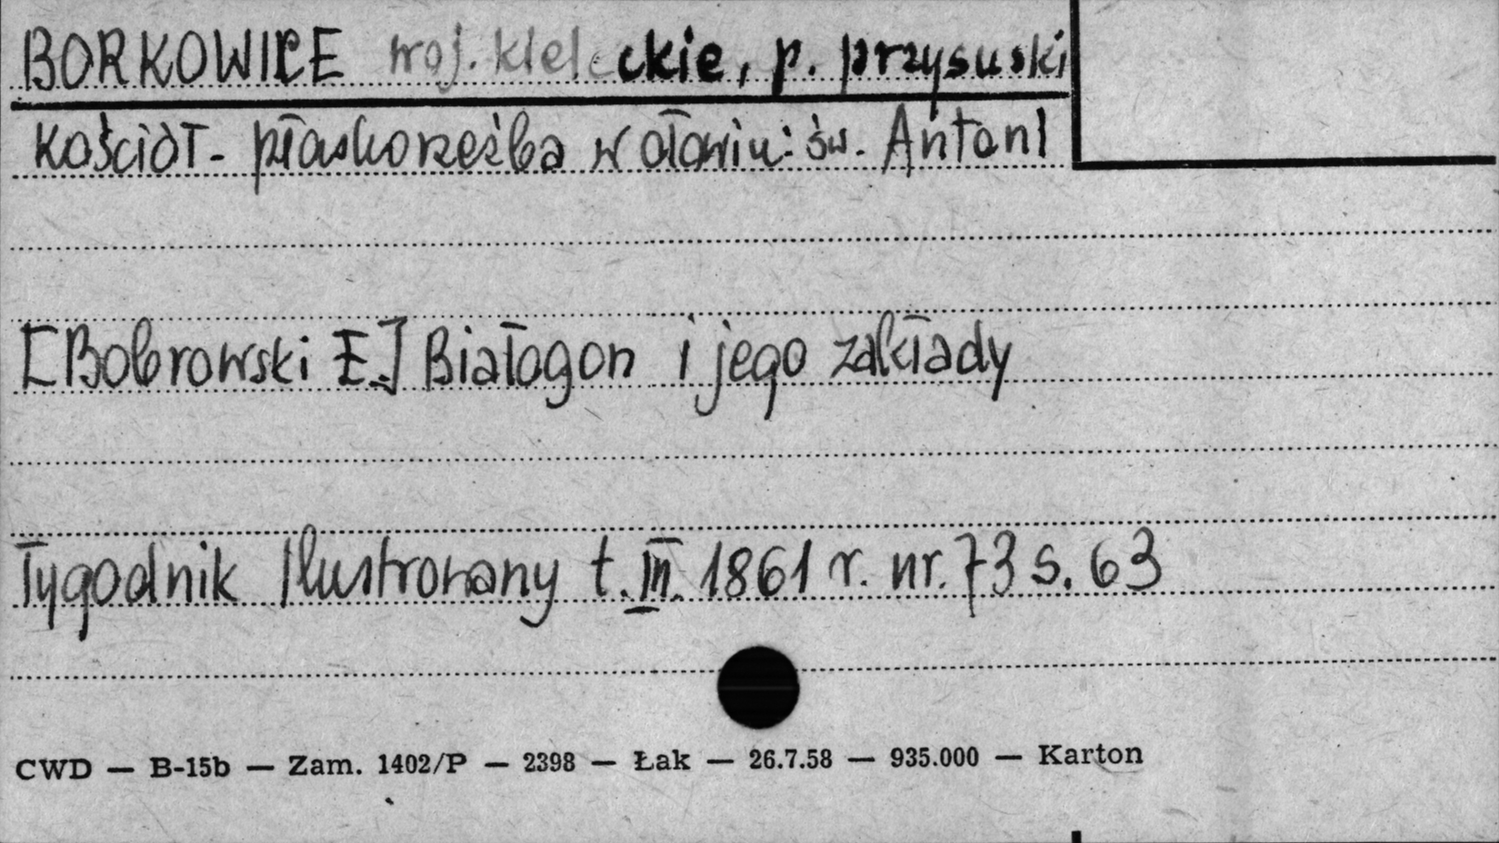 BORKOWICE woj. kieleckie, p. przysuski
Kościół - płaskorzeźba w ołowiu: św. Antoni
[Bobrowski E.] Białogon i jego zakłady
Tygodnik Ilustrowany t. III. 1861 r. nr. 73 s. 63
CWD — B-15b — Zam. 1402/P — 2398 — Łak — 26.7.58 — 935.000 — Karton